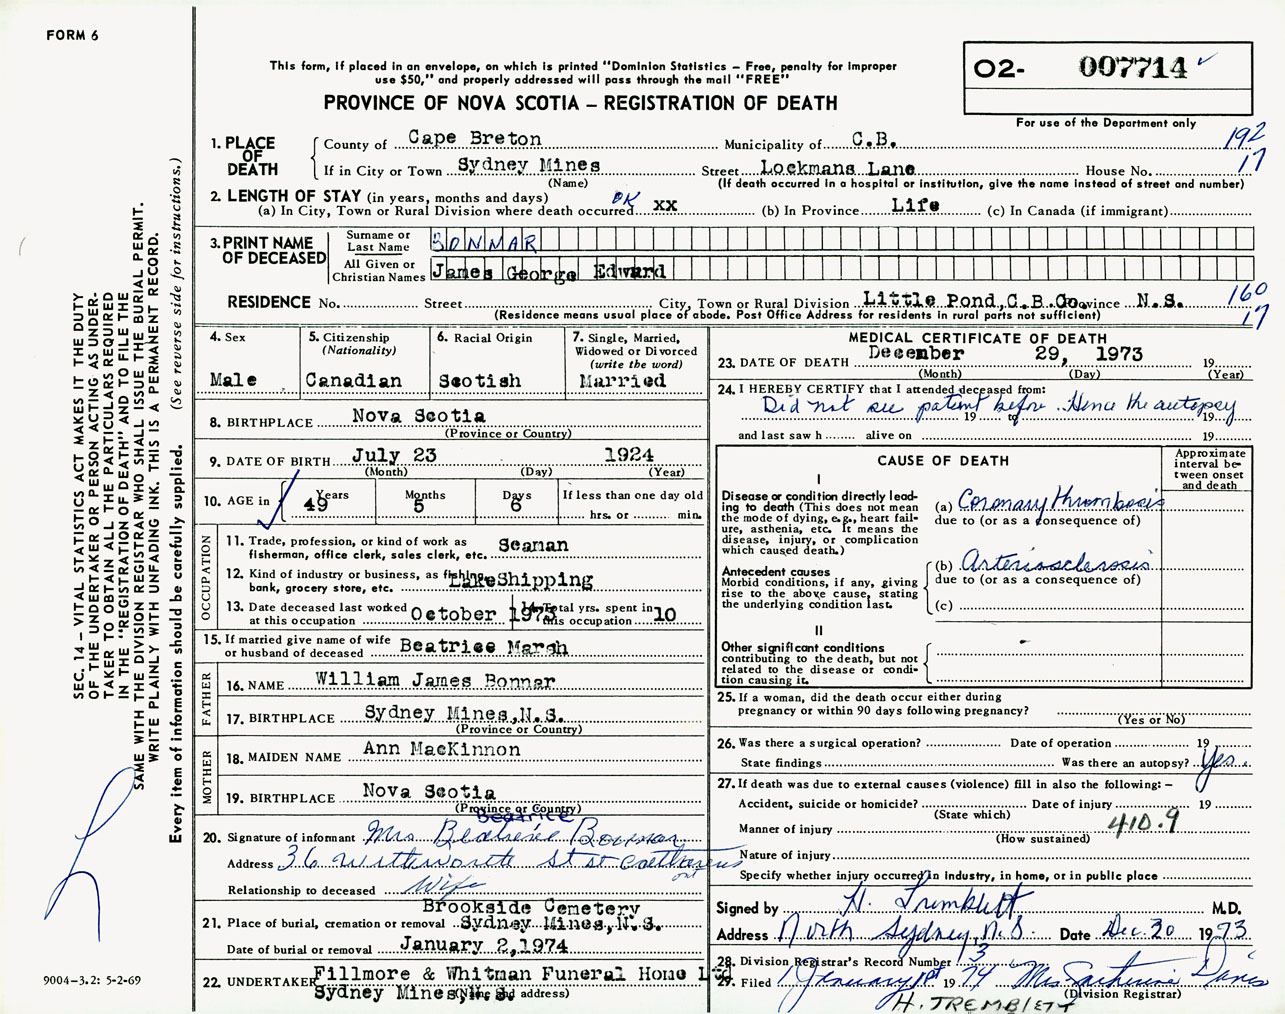 FORM 6
This form, if placed in an envelope, on which is printed "Dominion Statistics – Free, penalty for improper
use $50," and properly addressed will pass through the mail "FREE"
PROVINCE OF NOVA SCOTIA – REGISTRATION OF DEATH
02- 007714
For use of the Department only
1. PLACE OF DEATH
County of Cape Breton Municipality of C.B. 192
If in City or Town Sydney Mines Street Lockmans Lane House No. 17
(Name) (If death occurred in a hospital or institution, give the name instead of street and number)
2. LENGTH OF STAY (in years, months and days) OK
(a) In City, Town or Rural Division where death occurred xx (b) In Province Life (c) In Canada (if immigrant)
3. PRINT NAME OF DECEASED
Surname or Last Name BONNAR
All Given or Christian Names James George Edward
RESIDENCE No. Street City, Town or Rural Division Little Pond, C.B.Co. Province N.S. 160
(Residence means usual place of abode. Post Office Address for residents in rural parts not sufficient) 17
4. Sex Male
5. Citizenship (Nationality) Canadian
6. Racial Origin Scotish
7. Single, Married, Widowed or Divorced (write the word) Married
8. BIRTHPLACE Nova Scotia
(Province or Country)
9. DATE OF BIRTH July 23 1924
(Month) (Day) (Year)
10. AGE in Years 49 Months 5 Days 6 If less than one day old hrs. or min.
OCCUPATION
11. Trade, profession, or kind of work as Seaman
fisherman, office clerk, sales clerk, etc.
12. Kind of industry or business, as fishing, Lake Shipping
bank, grocery store, etc.
13. Date deceased last worked at this occupation October 1973 14. Total yrs. spent in this occupation 10
15. If married give name of wife or husband of deceased Beatrice Marsh
FATHER
16. NAME William James Bonnar
17. BIRTHPLACE Sydney Mines, N.S.
(Province or Country)
MOTHER
18. MAIDEN NAME Ann MacKinnon
19. BIRTHPLACE Nova Scotia
(Province or Country)
Beatrice
20. Signature of informant Mrs. Beatrice Bonnar
Address 36 St St Catharines ont
Relationship to deceased Wife
21. Place of burial, cremation or removal Brookside Cemetery
Sydney Mines, N.S.
Date of burial or removal January 2, 1974
22. UNDERTAKER Fillmore & Whitman Funeral Home Ltd
Sydney Mines, N.S. (Name and address)
MEDICAL CERTIFICATE OF DEATH
23. DATE OF DEATH December 29, 1973 19
(Month) (Day) (Year)
24. I HEREBY CERTIFY that I attended deceased from:
Did not see patient before. Hence the autopsy
19 to 19
and last saw h alive on 19
CAUSE OF DEATH
Approximate interval between onset and death
I
Disease or condition directly leading to death (This does not mean the mode of dying, e.g., heart failure, asthenia, etc. It means the disease, injury, or complication which caused death.)
(a) Coronary thrombosis
due to (or as a consequence of)
Antecedent causes
Morbid conditions, if any, giving rise to the above cause, stating the underlying condition last.
(b) Arteriosclerosis
due to (or as a consequence of)
(c)
II
Other significant conditions
contributing to the death, but not related to the disease or condition causing it.
-
25. If a woman, did the death occur either during
pregnancy or within 90 days following pregnancy?
(Yes or No)
26. Was there a surgical operation? Date of operation 19
State findings Was there an autopsy? Yes
27. If death was due to external causes (violence) fill in also the following: –
Accident, suicide or homicide? Date of injury 19
(State which)
Manner of injury 410.9
(How sustained)
Nature of injury
Specify whether injury occurred in industry, in home, or in public place
Signed by H. Tremblett M.D.
Address North Sydney, N.S. Date Dec. 30 1973
28. Division Registrar's Record Number 13
29. Filed January 1st 1974 Mrs Davis
(Division Registrar)
H. TREMBLETT
SEC. 14 – VITAL STATISTICS ACT MAKES IT THE DUTY
OF THE UNDERTAKER OR PERSON ACTING AS UNDER-
TAKER TO OBTAIN ALL THE PARTICULARS REQUIRED
IN THE "REGISTRATION OF DEATH" AND TO FILE THE
SAME WITH THE DIVISION REGISTRAR WHO SHALL ISSUE THE BURIAL PERMIT.
WRITE PLAINLY WITH UNFADING INK. THIS IS A PERMANENT RECORD.
Every item of information should be carefully supplied. (See reverse side for instructions.)
9004-3.2: 5-2-69